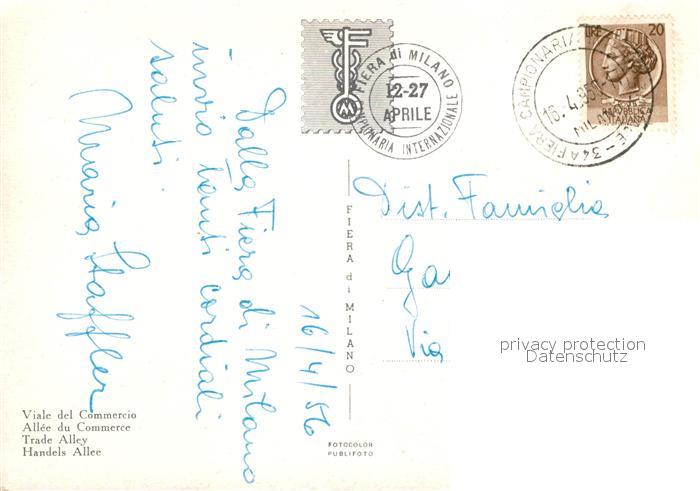 FIERA di MILANO
12-27
APRILE
CAMPIONARIA INTERNAZIONALE
LIRE 20
REPUBBLICA
ITALIANA
34A FIERA CAMPIONARIA
16.4.56
MILANO
16/4/56
Dalla Fiera di Milano
invio tanti cordiali
saluti
Maria Staffler
FIERA di MILANO
Dist. Famiglia
Ga
Via
privacy protection
Datenschutz
Viale del Commercio
Allée du Commerce
Trade Alley
Handels Allee
FOTOCOLOR
PUBLIFOTO